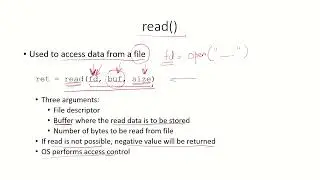 read()
• Used to access data from a file
fd = open("    ")
ret = read(fd, buf, size)
• Three arguments:
• File descriptor
• Buffer where the read data is to be stored
• Number of bytes to be read from file
• If read is not possible, negative value will be returned
• OS performs access control